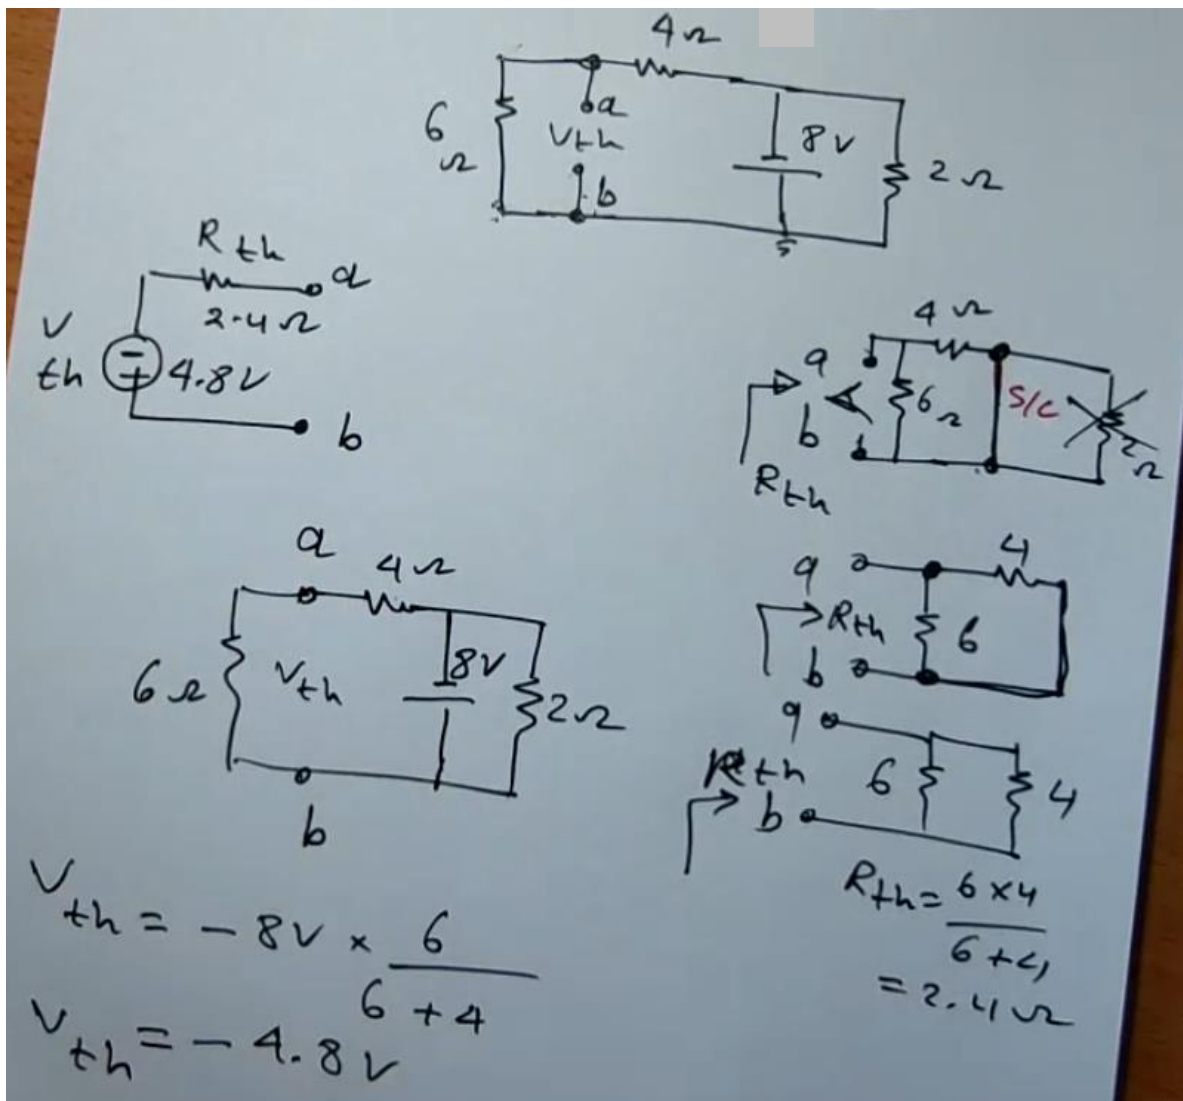 4Ω
6
Ω
a
Vth
b
8V
2Ω
Rth
a
2.4Ω
V
th
4.8V
b
4Ω
a
6Ω
S/C
b
2Ω
Rth
a
4Ω
6Ω
Vth
8V
2Ω
b
4
a
Rth
6
b
a
Rth
6
4
b
Vth = - 8V × 6
6 + 4
Vth = - 4.8V
Rth = 6 × 4
6 + 4
= 2.4Ω